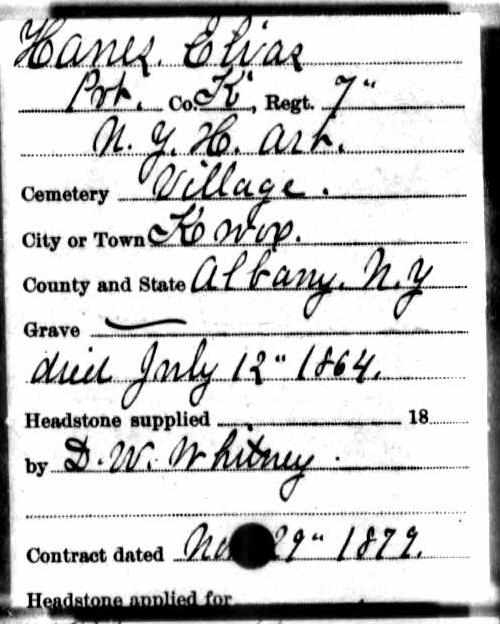 Hanes. Elias
Pvt. Co. K, Regt. 7"
N. Y. H. Art.
Cemetery Village.
City or Town Knox.
County and State Albany. N.Y
Grave
died July 12" 1864.
Headstone supplied 18
by D. W. Whitney.
Contract dated 29" 1879.
Headstone applied for